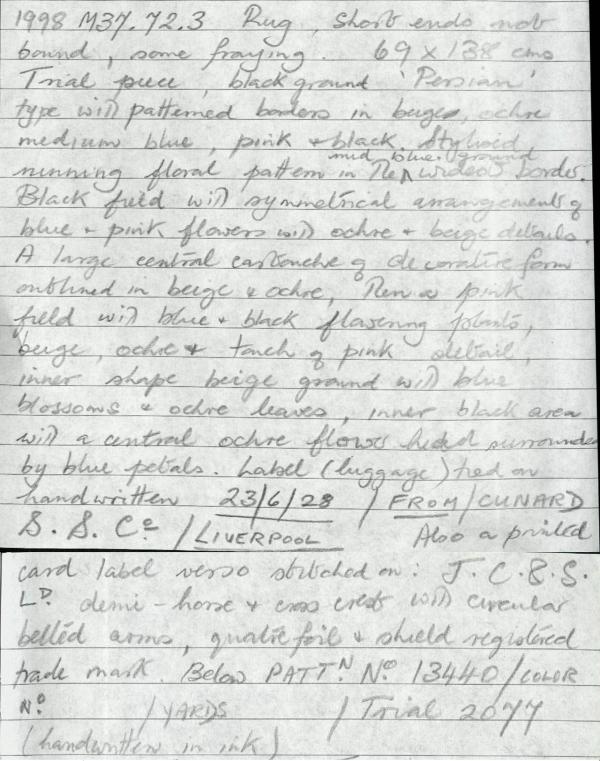 1998 M37.72.3 Rug, short ends not
bound, some fraying. 69 x 138 cms
Trial piece, black ground 'Persian'
type with patterned borders in beige, ochre
medium blue, pink + black. Stylised
mid blue ground
running floral pattern in the widest border.
Black field with symmetrical arrangements of
blue + pink flowers with ochre + beige details.
A large central cartouche of decorative form
outlined in beige & ochre, then a pink
field with blue + black flowering plants,
beige, ochre + touch of pink detail,
inner shape beige ground with blue
blossoms & ochre leaves, inner black area
with a central ochre flower head surrounded
by blue petals. Label (luggage) tied on
handwritten 23/6/28 / FROM / CUNARD
S. S. Co / LIVERPOOL Also a printed
card label verso stitched on: J. C. & S.
LD. demi-horse & cross crest with circular
belted arms, quatrefoil & shield registered
trade mark. Below PATTN. No. 13440 / COLOR
No. / YARDS / Trial 2077
(handwritten in ink)